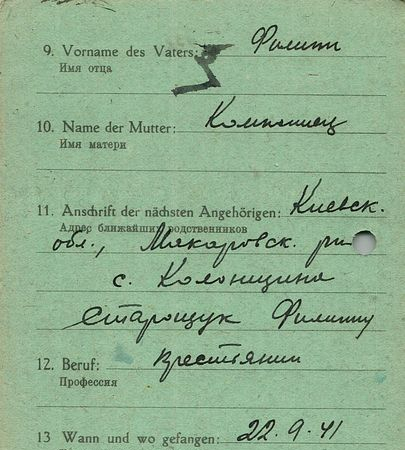 9. Vorname des Vaters: Филипп
Имя отца
10. Name der Mutter: Компаниец
Имя матери
11. Anschrift der nächsten Angehörigen: Киевск.
Адрес ближайших родственников
обл., Макаровск.
с. Колонщина
Старощук Филиппу
12. Beruf: крестьянин
Профессия
13 Wann und wo gefangen: 22.9.41